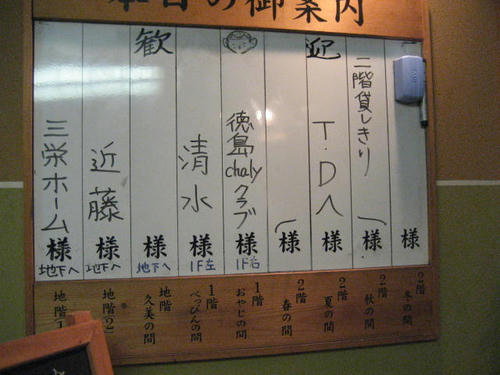 本日の御案内
歓 迎
二階貸しきり
様
様
T.D
様
様
徳島chalyクラブ
様
1F右
清水
様
1F左
様
地下へ
近藤
様
地下へ
三栄ホーム
様
地下へ
2階
冬の間
2階
秋の間
2階
夏の間
2階
春の間
1階
おやじの間
1階
べっぴんの間
地階
久美の間
地階2
地階1